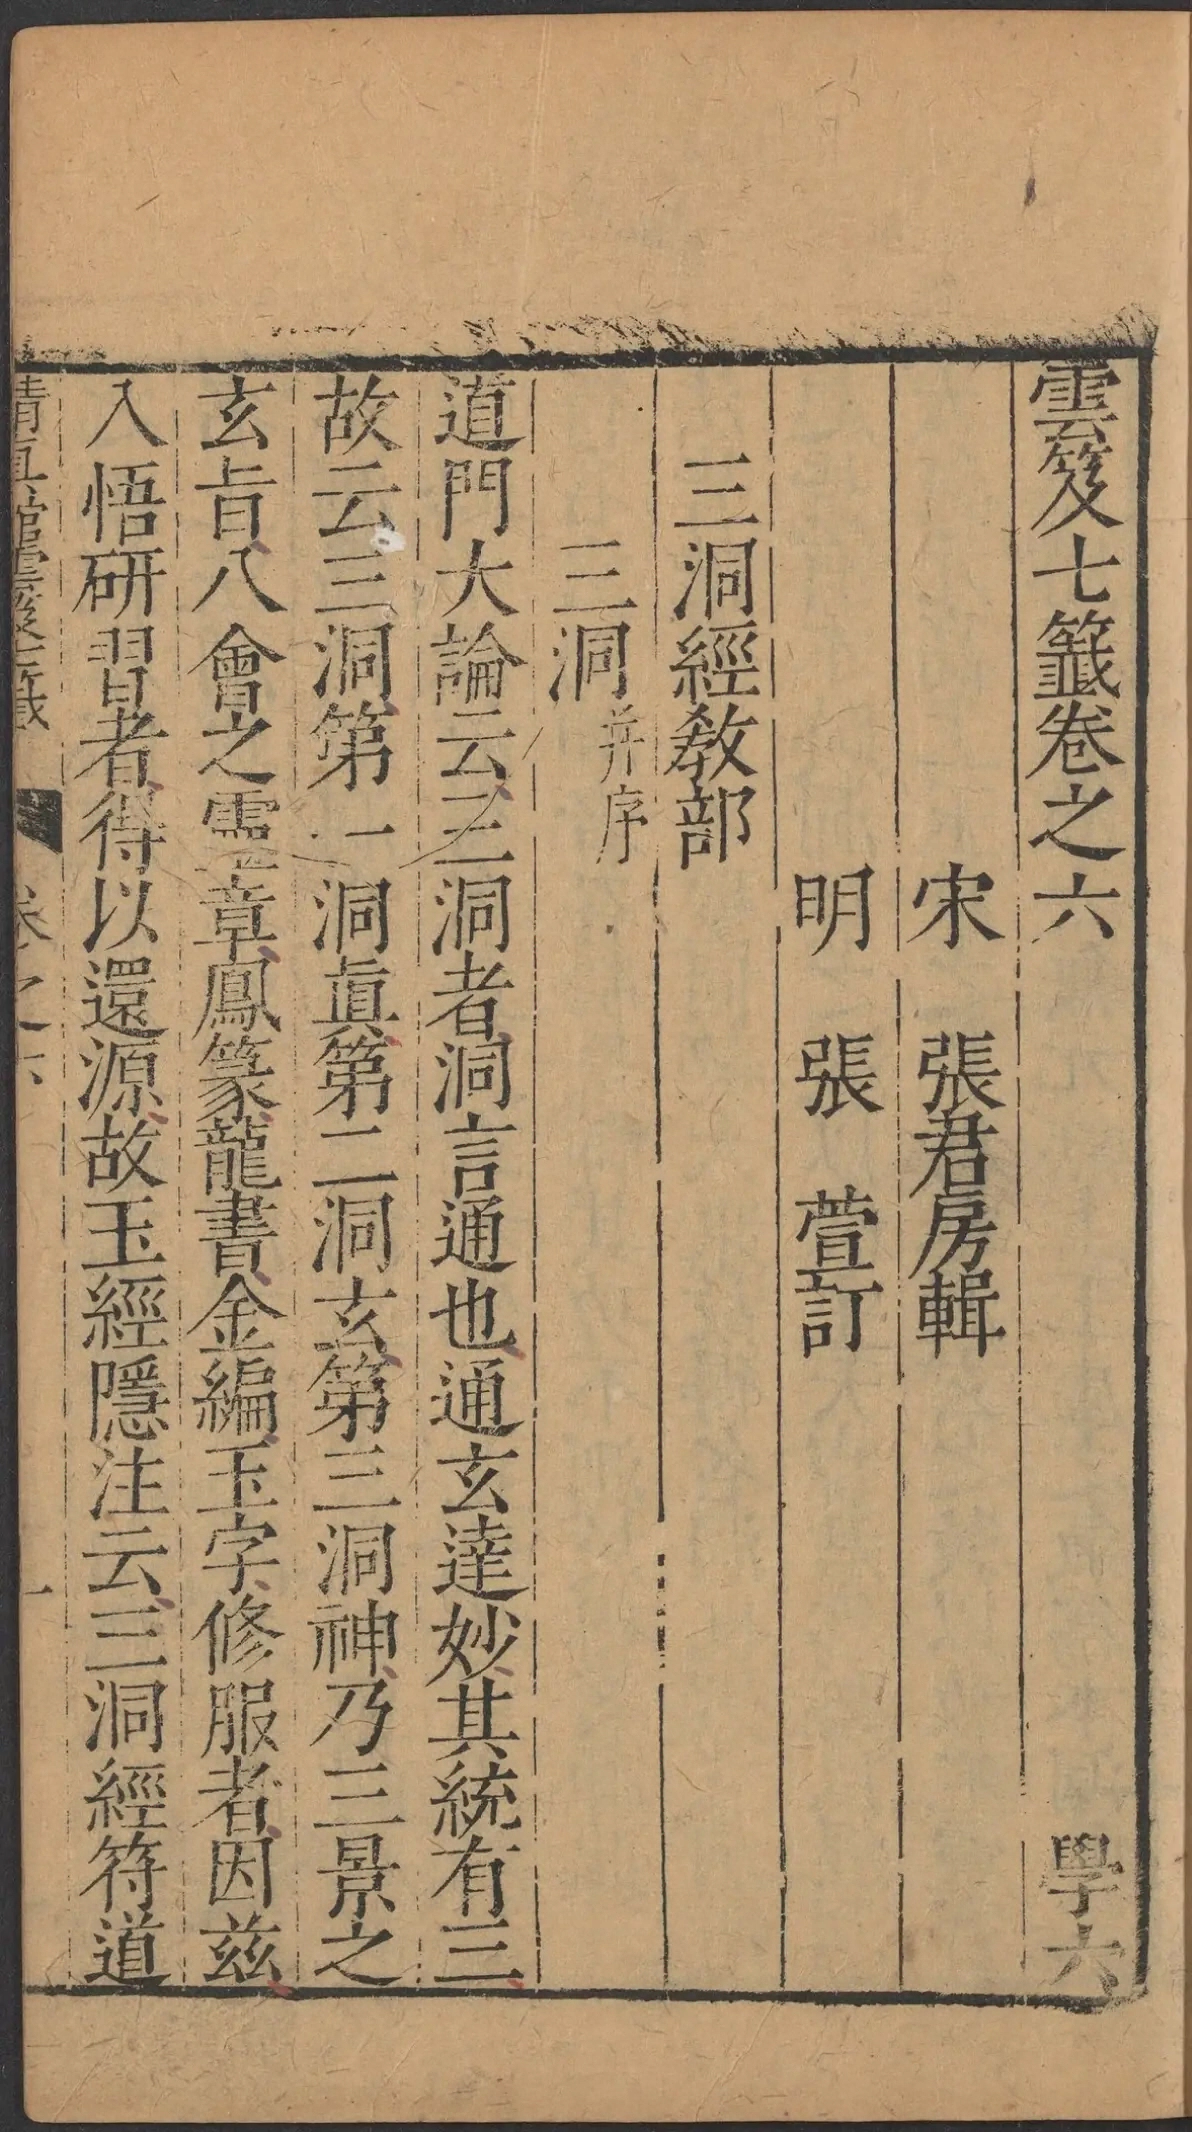 雲笈七籤卷之六 學六
宋 張君房輯
明 張 萱訂
三洞經敎部
三洞并序
道門大論云三洞者洞言通也通玄達妙其統有三
故云三洞第一洞眞第二洞玄第三洞神乃三景之
玄旨八會之靈章鳳篆龍書金編玉字修服者因兹
入悟研習者得以還源故玉經隱注云三洞經符道
清眞館雲笈七籤 卷之六 一